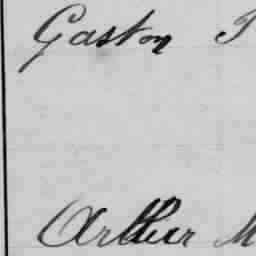 Gaston
Arthur M